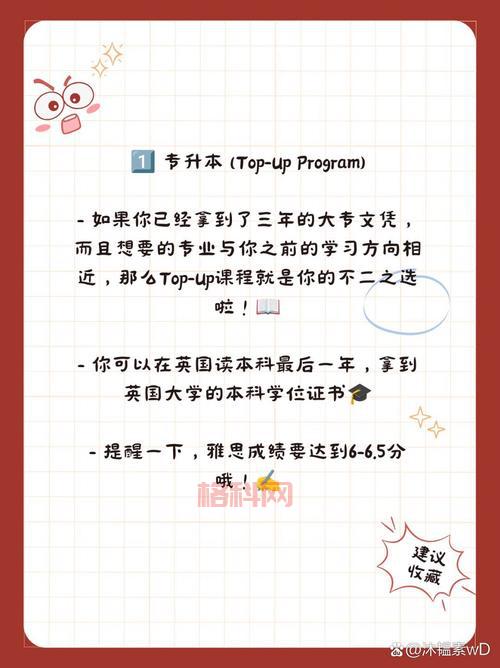 1 专升本 (Top-Up Program)
- 如果你已经拿到了三年的大专文凭，
而且想要的专业与你之前的学习方向相
近，那么Top-Up课程就是你的不二之选
啦！
- 你可以在英国读本科最后一年，拿到
英国大学的本科学位证书
- 提醒一下，雅思成绩要达到6-6.5分
哦！
格科网
建议
收藏
@沐韫素wD